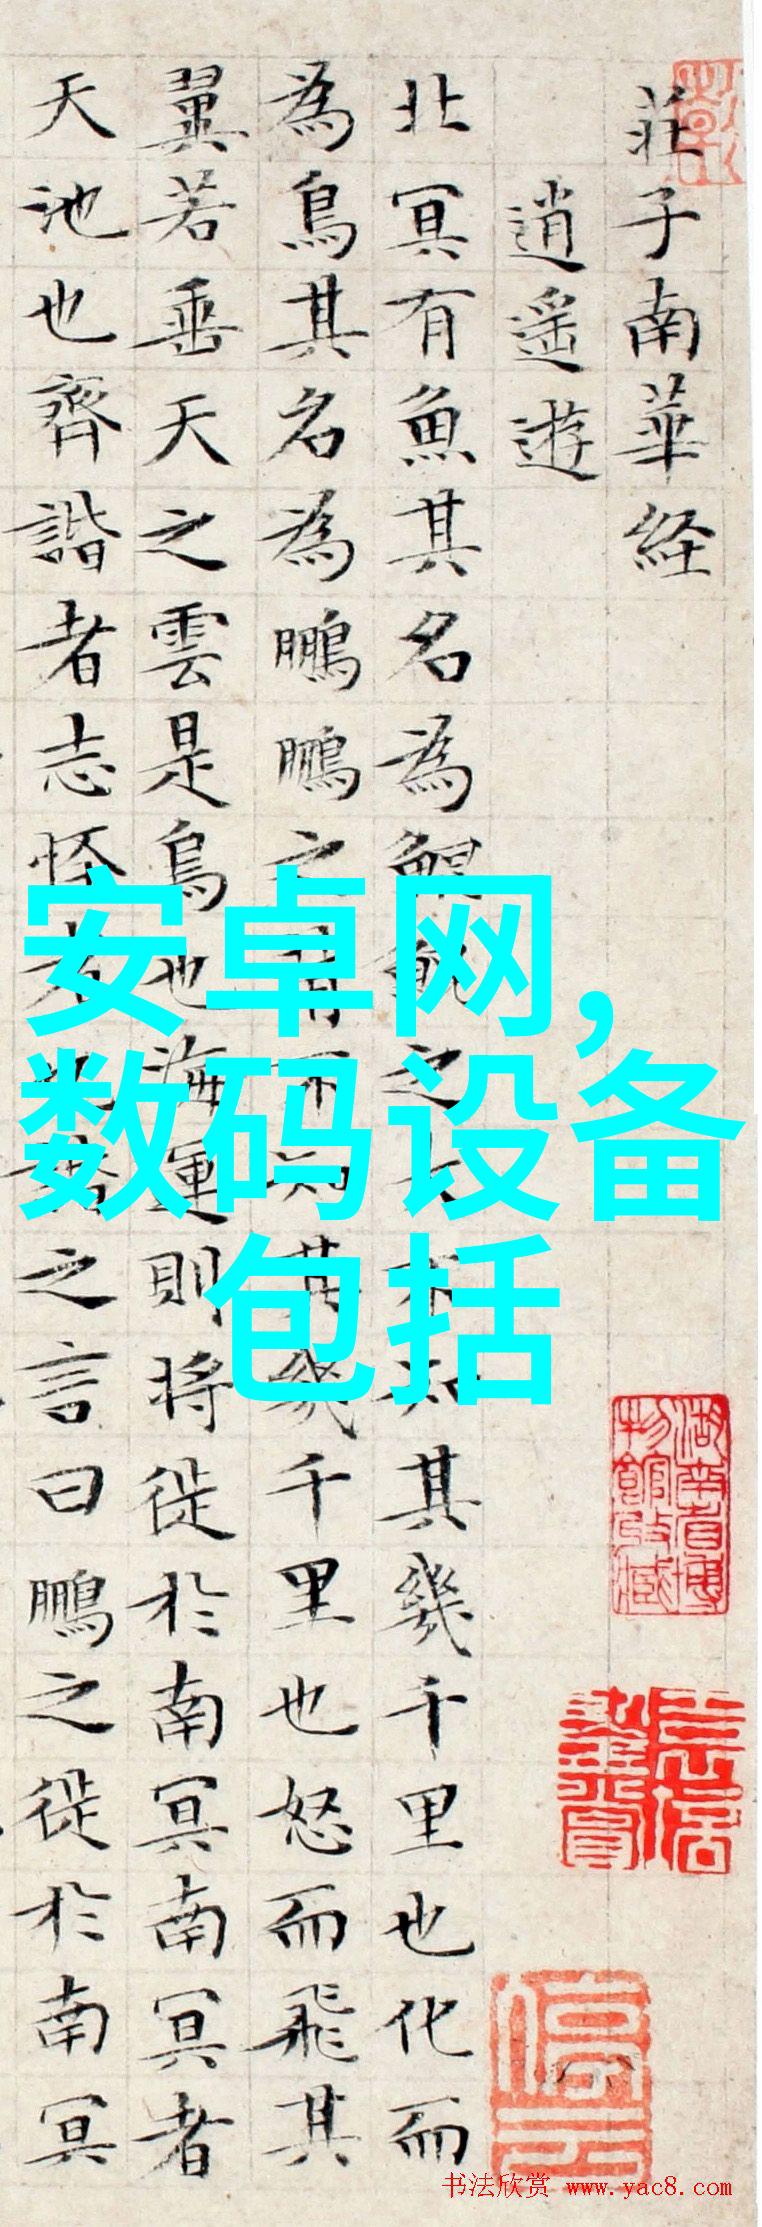 莊子南華経
逍遥遊
北冥有魚其名為鯤鯤之大不知其幾千里也化而
為鳥其名為鵬鵬之背不知其幾千里也怒而飛其
翼若垂天之雲是鳥也海運則将徙於南冥南冥者
天池也齊諧者志怪者也諧之言曰鵬之徙於南冥
安卓网,
数码设备
包括
湖南省博
物館收藏
书法欣赏 www.yac8.com